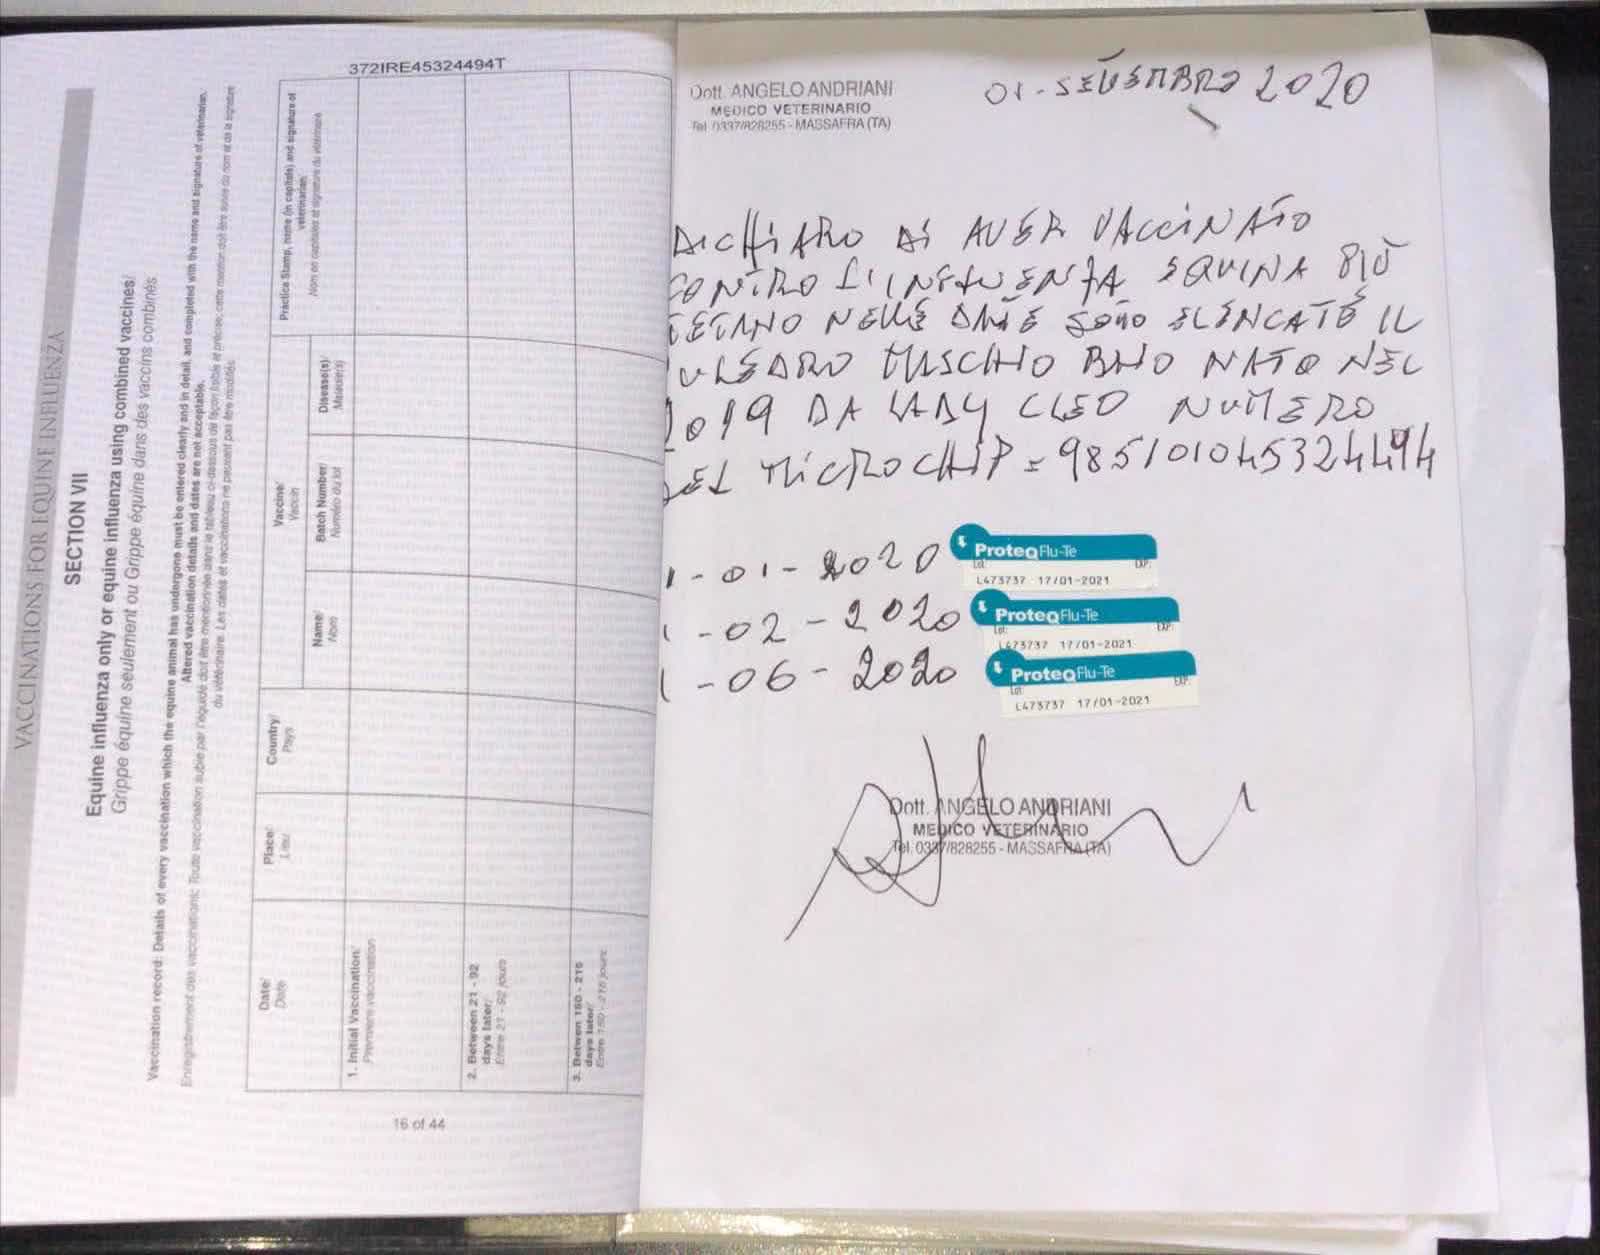 372IRE45324494T
VACCINATIONS FOR EQUINE INFLUENZA
SECTION VII
Equine influenza only or equine influenza using combined vaccines/
Grippe équine seulement ou Grippe équine dans des vaccins combinés
Vaccination record: Details of every vaccination which the equine animal has undergone must be entered clearly and in detail, and completed with the name and signature of veterinarian.
Altered vaccination details and dates are not acceptable.
Enregistrement des vaccinations: Toute vaccination subie par l'équidé doit être mentionnée dans le tableau ci-dessous de façon lisible et précise, cette mention doit être suivie du nom et de la signature
du vétérinaire. Les dates et vaccinations ne peuvent pas être modifiés.
Date/
Date
Place/
Lieu
Country/
Pays
Vaccine/
Vaccin
Name/
Nom
Batch Number/
Numéro du lot
Disease(s)/
Maladie(s)
Practice Stamp, name (in capitals) and signature of
veterinarian/
Nom en capitales et signature du vétérinaire
1. Initial Vaccination/
Première vaccination
2. Between 21 - 92
days later/
Entre 21 - 92 jours
3. Betwen 150 - 215
days later/
Entre 150 - 215 jours
16 of 44
Dott. ANGELO ANDRIANI
MEDICO VETERINARIO
Tel. 0337/828255 - MASSAFRA (TA)
01 - SETTEMBRE 2020
DICHIARO DI AVER VACCINATO
CONTRO L'INFLUENZA EQUINA PIÙ
TETANO NELLE DATE SOTTO ELENCATE IL
PULEDRO MASCHIO BAIO NATO NEL
2019 DA LADY CLEO NUMERO
DEL MICROCHIP = 985101045324494
1 - 01 - 2020
ProteqFlu-Te
Lot: EXP:
L473737 17/01-2021
1 - 02 - 2020
ProteqFlu-Te
Lot: EXP:
L473737 17/01-2021
1 - 06 - 2020
ProteqFlu-Te
Lot: EXP:
L473737 17/01-2021
Dott. ANGELO ANDRIANI
MEDICO VETERINARIO
Tel. 0337/828255 - MASSAFRA (TA)